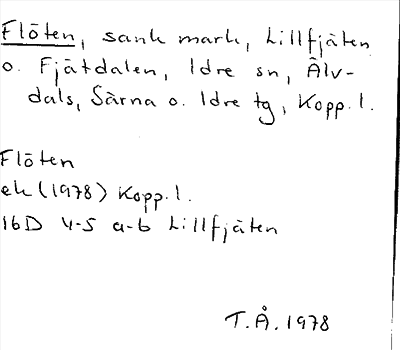 Flöten, sank mark, Lillfjäten
o. Fjätdalen, Idre sn, Älv-
dals, Särna o. Idre tg, Kopp. l.
Flöten
ek (1978) Kopp. l.
16D 4-5 a-b Lillfjäten
T.Å. 1978